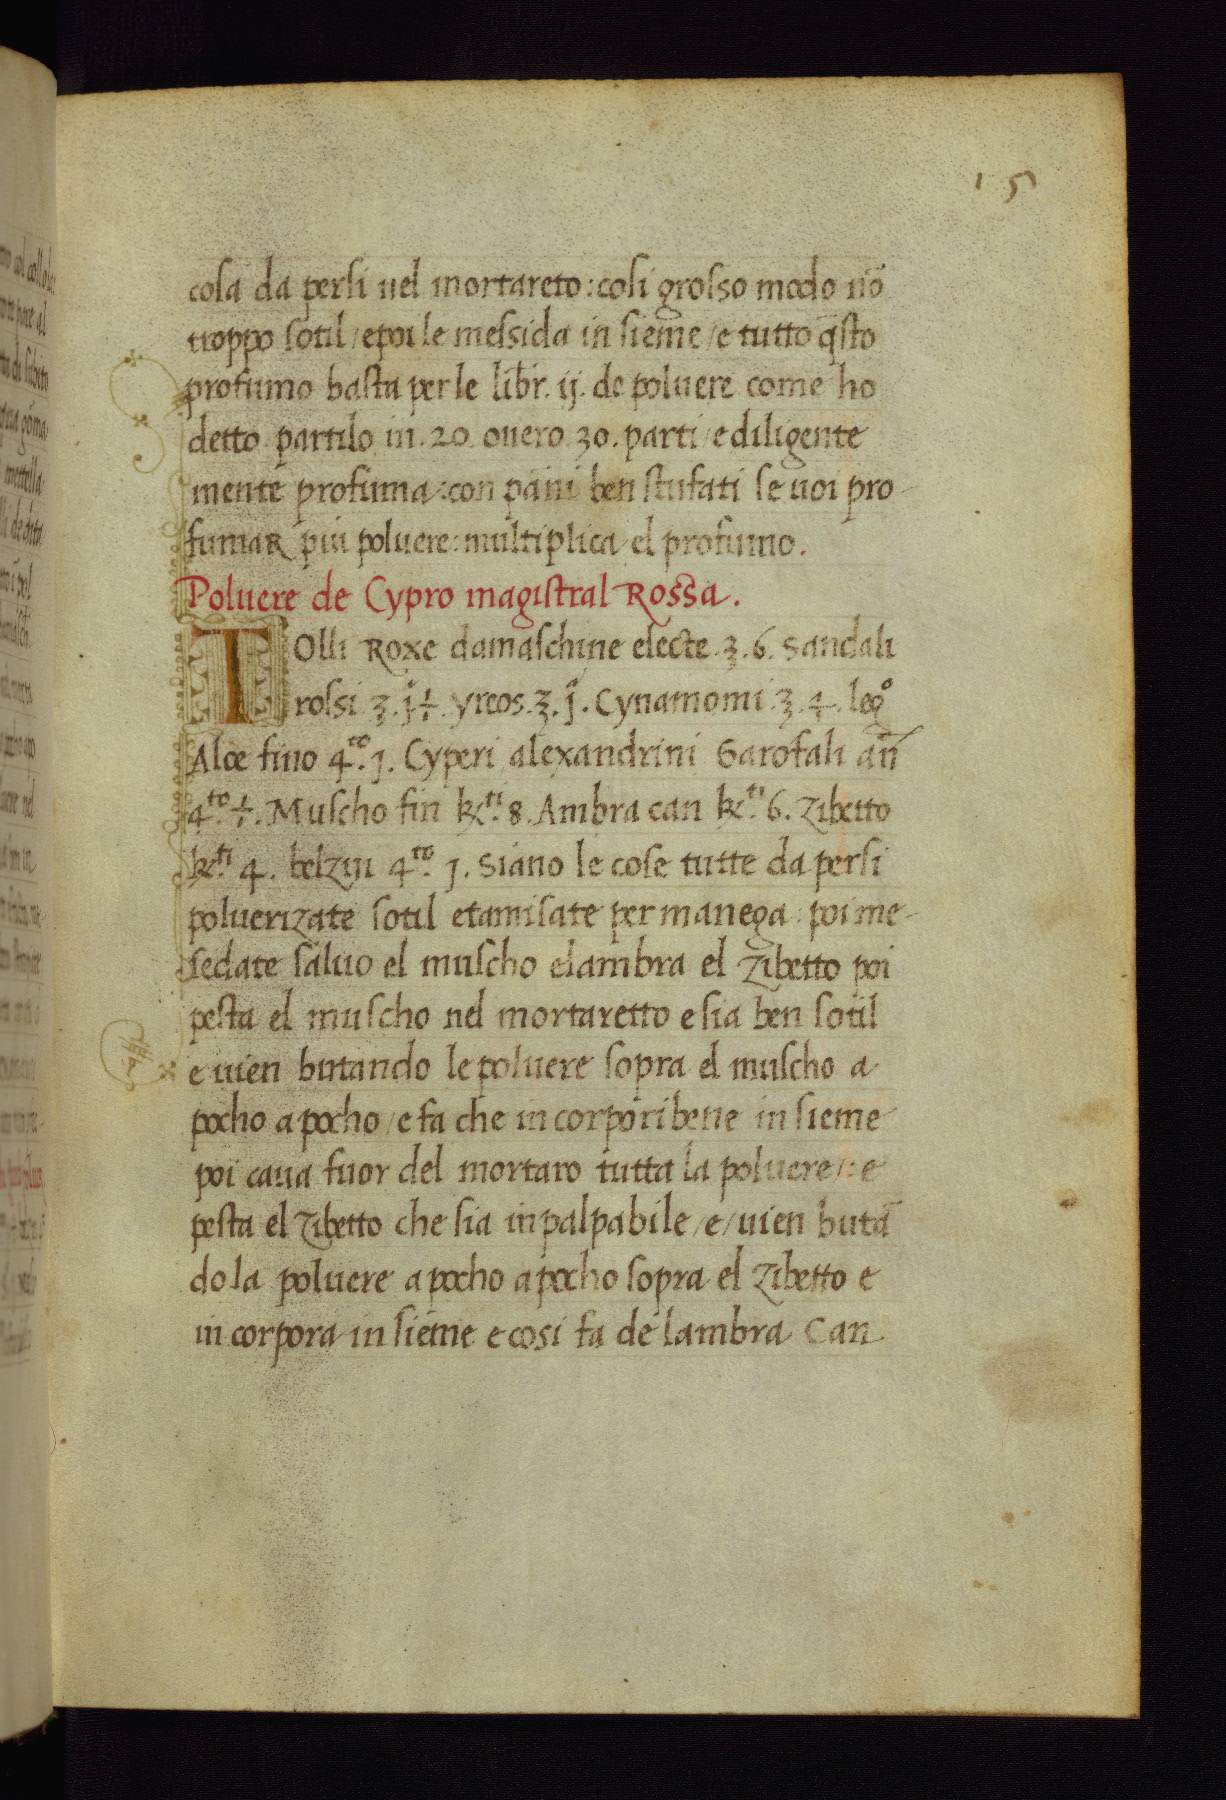 15
cosa da persi nel mortareto: cosi grosso modo nō
troppo sotil / e poi le messida in sieme / e tutto q̄sto
profumo basta per le libr. ij. de poluere come ho
detto partilo in. 20. ouero 30. parti / e diligente
mente profuma: con pani ben stufati se uoi pro-
fumar piu poluere: multiplica el profumo.
Poluere de Cypro magistral Rossa.
TOlli Roxe damaschine electe ʒ. 6. Sandali
rossi ʒ. j ÷. yreos. ʒ. j. Cynamomi ʒ. 4. leg͂o
Aloe fino 4ͭͦ. j. Cyperi alexandrini Garofali an̄
4ͭͦ. ÷. Muscho fin kͭͥ. 8. Ambra can kͭͥ. 6. Zibetto
kͭͥ. 4. belzui 4ͭͦ. j. Siano le cose tutte da persi
poluerizate sotil e tamisate per manega: poi me-
sedate saluo el muscho elambra el Zibetto poi
pesta el muscho nel mortaretto e sia ben sotil
e uien butando le poluere sopra el muscho a
pocho a pocho / e fa che in corpori bene in sieme
poi caua fuor del mortaro tutta la poluere /: e
pesta el Zibetto che sia inpalpabile / e / uien butā
do la poluere a pocho a pocho sopra el Zibetto e
in corpora in sieme e cosi fa de lambra Can